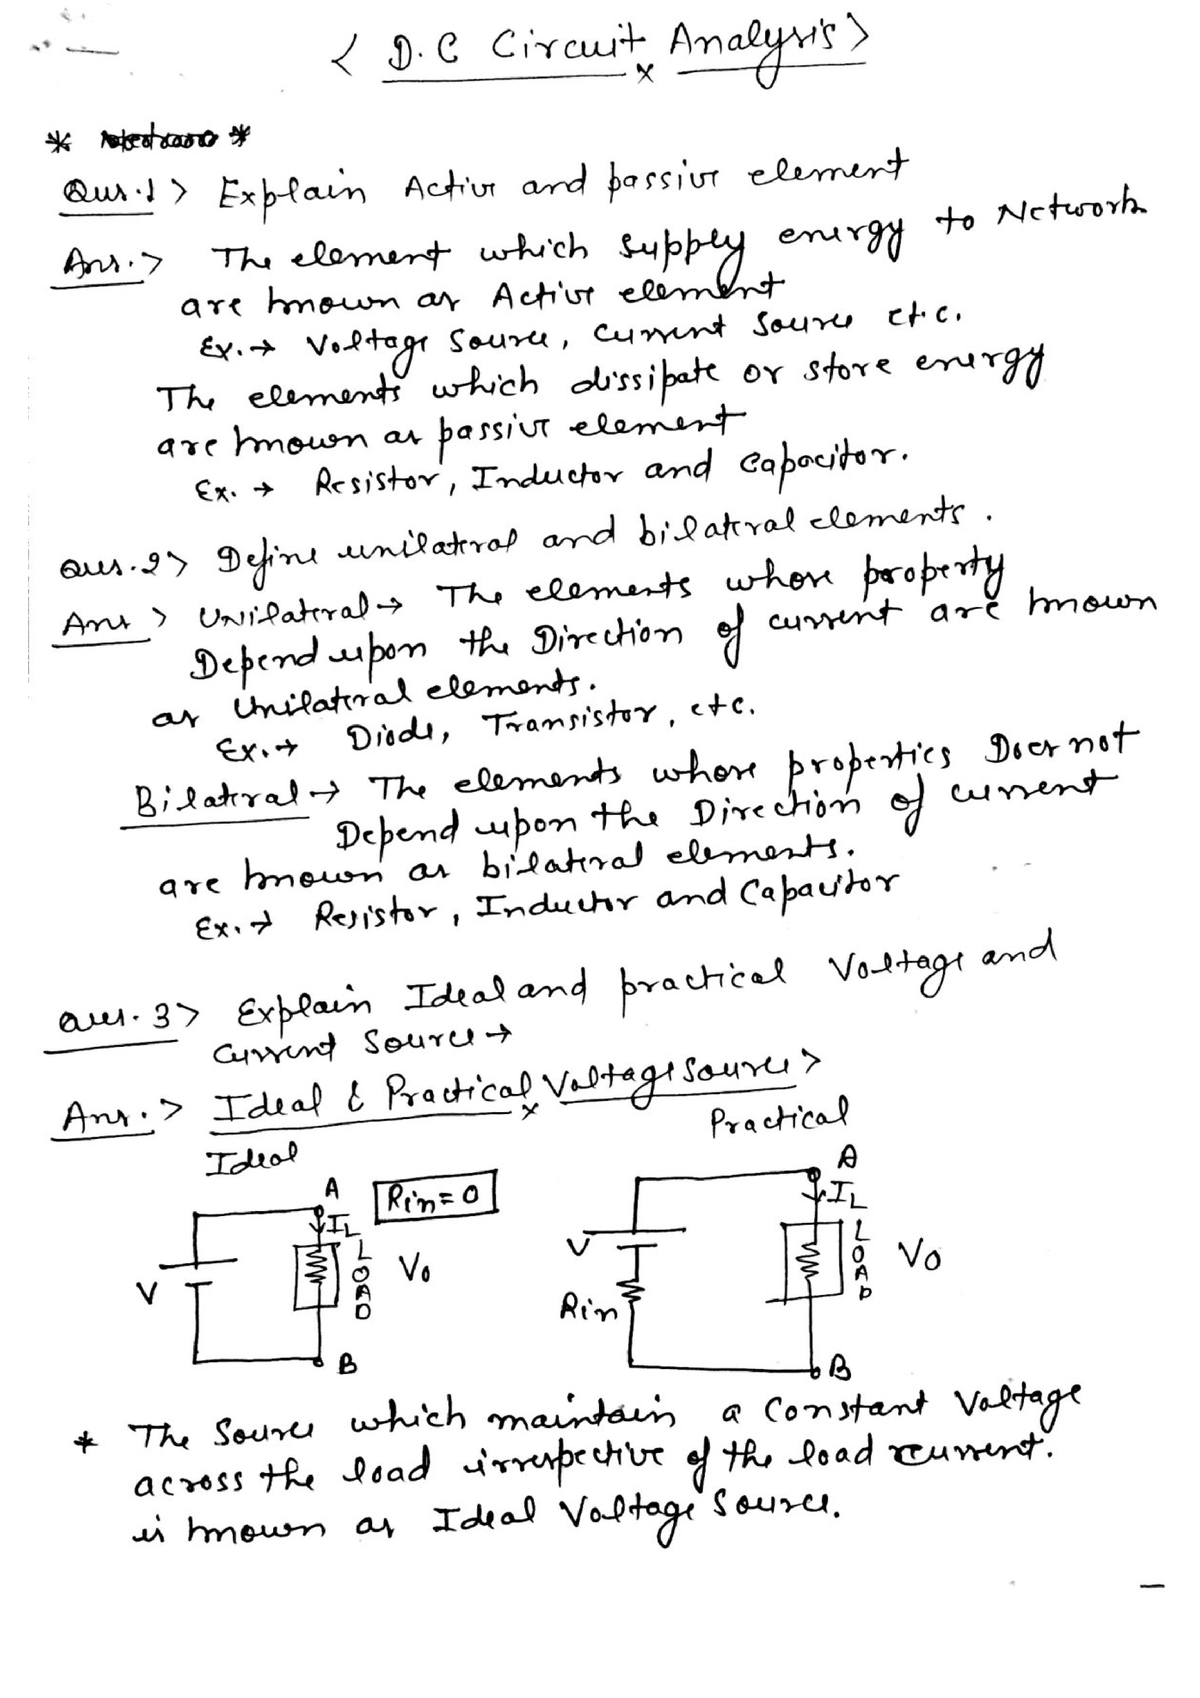 < D.C Circuit Analysis >
x
* *
Ques.1> Explain Active and passive element
Ans.> The element which supply energy to Network
are known as Active element
Ex.→ Voltage Source, Current Source etc.
The elements which dissipate or store energy
are known as passive element
Ex. → Resistor, Inductor and Capacitor.
Ques.2> Define unilateral and bilateral elements.
Ans > Unilateral → The elements whose property
Depend upon the Direction of current are known
as Unilateral elements.
Ex.→ Diode, Transistor, etc.
Bilateral → The elements whose properties Does not
Depend upon the Direction of current
are known as bilateral elements.
Ex.→ Resistor, Inductor and Capacitor
Ques.3> Explain Ideal and practical Voltage and
Current Source →
Ans.> Ideal & Practical Voltage Source >
x
Ideal
Practical
A
Rin = 0
IL
V
LOAD
Vo
B
A
IL
V
Rin
LOAD
Vo
B
* The Source which maintain a Constant Voltage
across the load irrespective of the load current.
is known as Ideal Voltage Source.
1